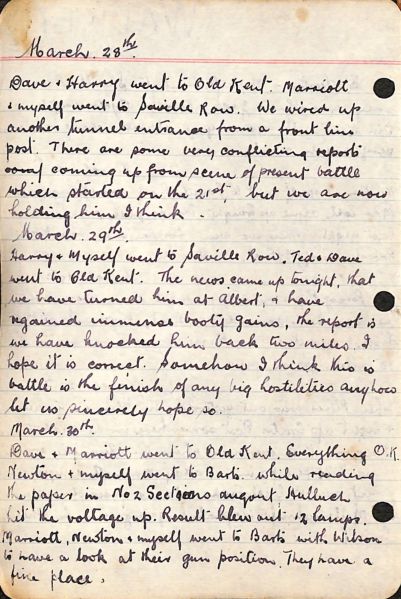 March. 28th.
Dave + Harry went to Old Kent. Marriott
+ myself went to Saville Row. We wired up
another tunnel entrance from a front line
post. There are some very conflicting reports
coming up from scene of present battle
which started on the 21st, but we are now
holding him I think.
March. 29th.
Harry + Myself went to Saville Row. Ted + Dave
went to Old Kent. The news came up tonight, that
we have turned him at Albert, + have
regained immense booty gains, the report is
we have knocked him back two miles. I
hope it is correct. Somehow I think this is
battle is the finish of any big hostilities anyhow
let us sincerely hope so.
March. 30th.
Dave + Marriott went to Old Kent. Everything O.K.
Newton + myself went to Barts. while reading
the paper in No 2 Sections dugout Hulluch
hit the voltage up. Result blew out 12 lamps.
Marriott, Newton + myself went to Barts with Wilson
to have a look at their gun position. They have a
fine place.